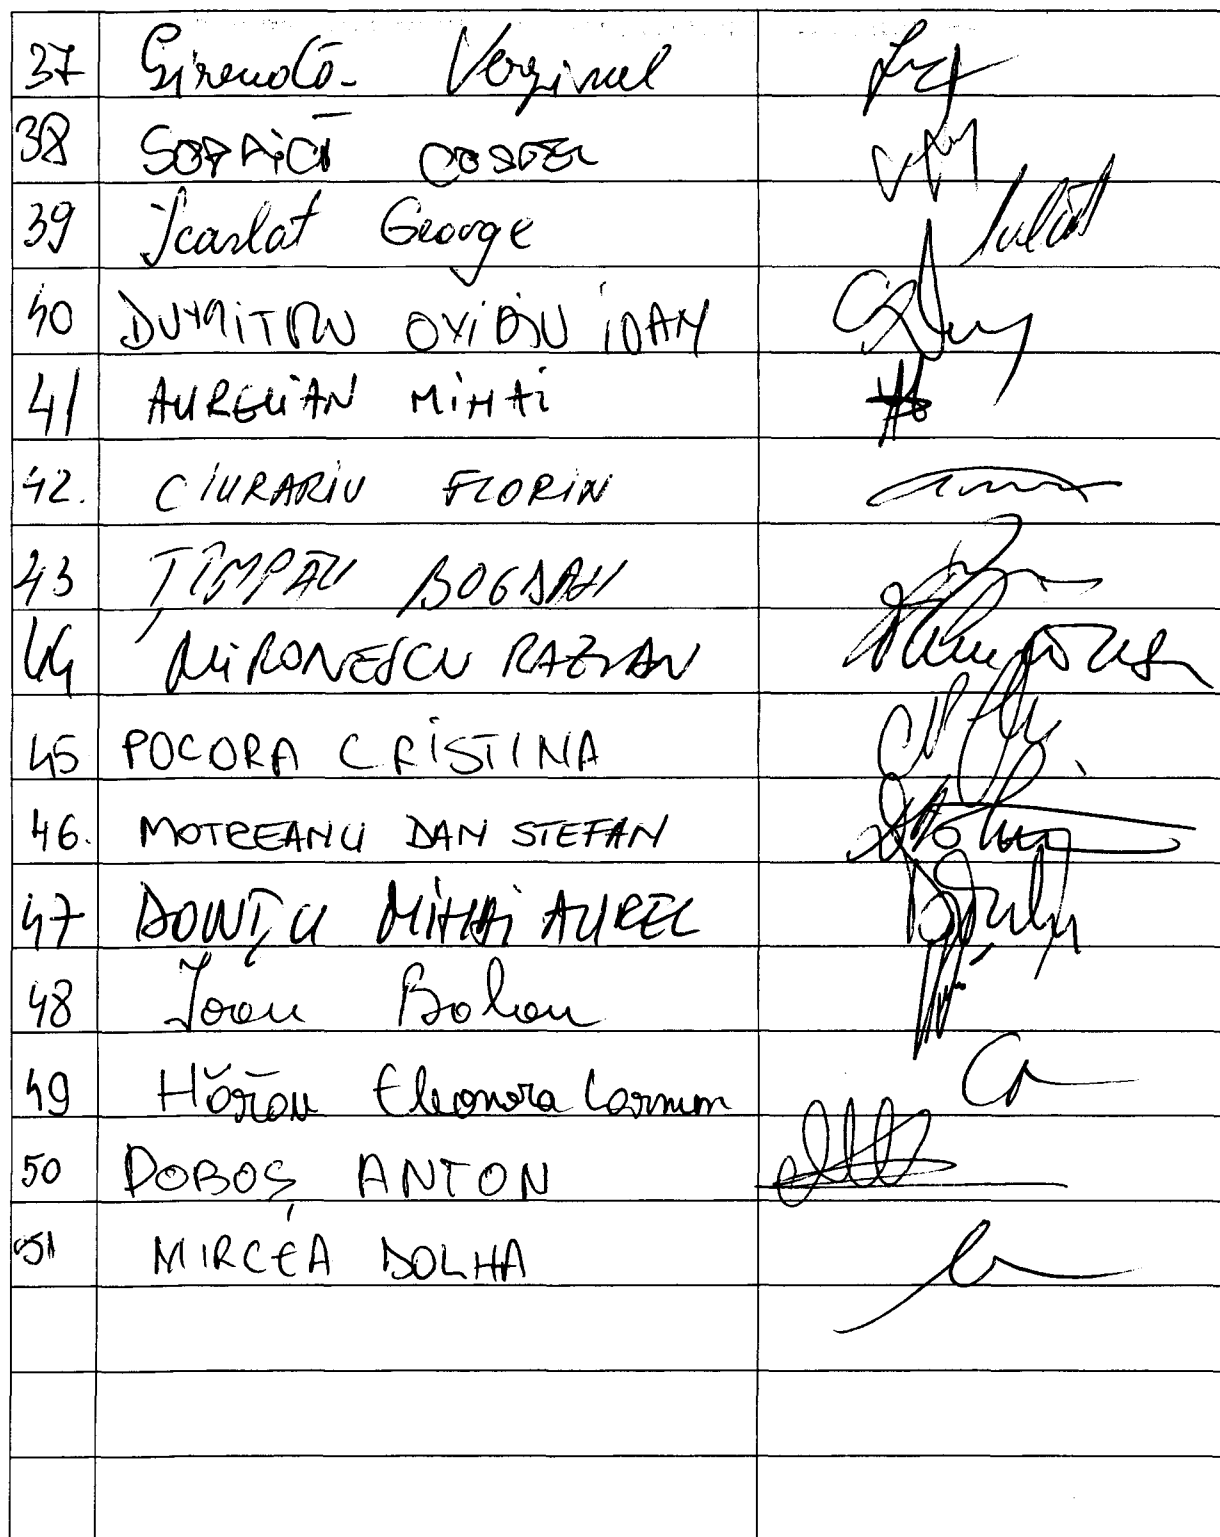 37 Gireadă Verginel
38 SOPPICĂ COSTEL
39 Scarlat George
40 DUMITRU OVIDIU IOAN
41 AURELIAN MIHAI
42. CIURARIU FLORIN
43 ȚÎMPĂU BOGDAN
44 MIRONESCU RAZVAN
45 POCORA CRISTINA
46. MOTREANU DAN STEFAN
47 DONȚU MIHAI AUREL
48 Ioan Balan
49 Hărău Eleonora Carmen
50 DOBOȘ ANTON
51 MIRCEA DOLHA